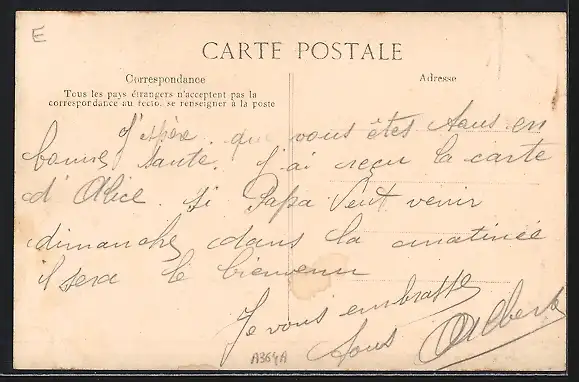 E
CARTE POSTALE
Correspondance
Adresse
Tous les pays étrangers n'acceptent pas la
correspondance au recto, se renseigner à la poste
J'espère que vous êtes tous en
bonne santé. J'ai reçu la carte
d'Alice. Si Papa veut venir
dimanche dans la matinée
il sera le bienvenu
Je vous embrasse
tous Albert
A364A